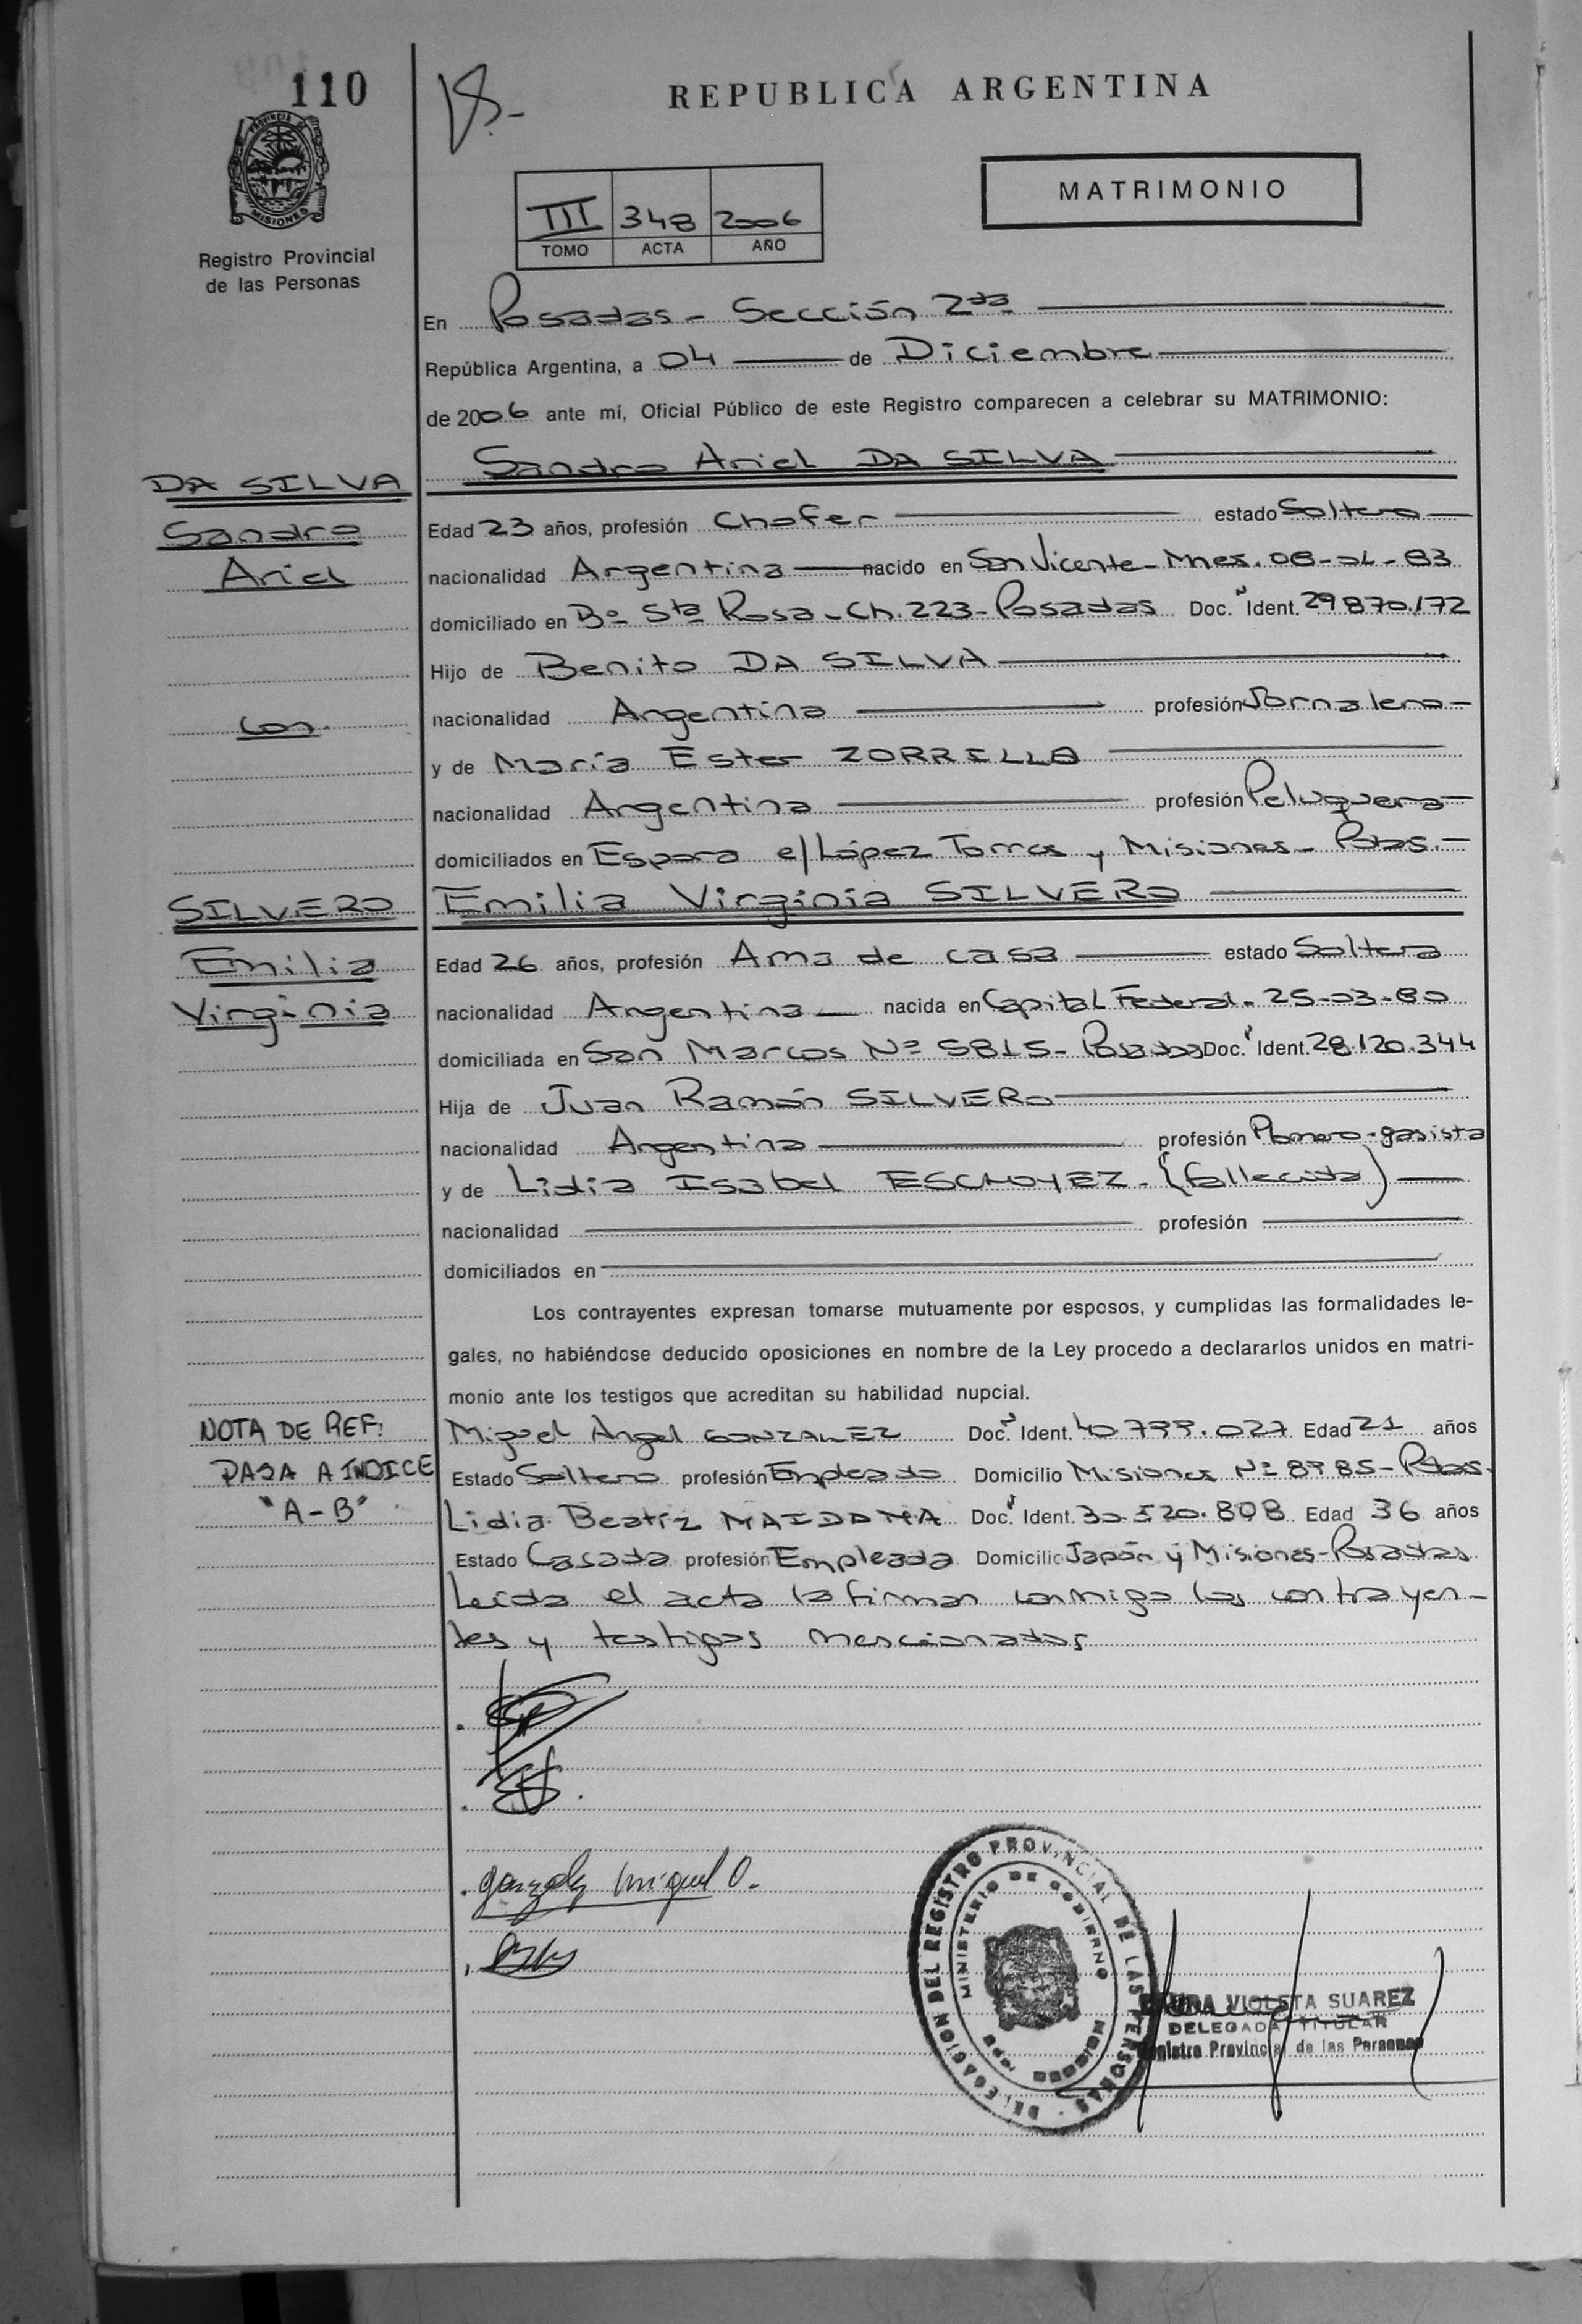 110
REPUBLICA ARGENTINA
MATRIMONIO
PROVINCIA DE
MISIONES
Registro Provincial
de las Personas
III 348 2006
TOMO ACTA AÑO
En Posadas - Sección 2da
República Argentina, a 04 de Diciembre
de 2006 ante mí, Oficial Público de este Registro comparecen a celebrar su MATRIMONIO:
DA SILVA
Sandro
Ariel
con
Sandro Ariel DA SILVA
Edad 23 años, profesión Chofer estado Soltero
nacionalidad Argentina nacido en San Vicente - Mnes. 08-04-83
domiciliado en Bº Sta Rosa - Ch. 223 - Posadas Doc. Ident. 29.870.172
Hijo de Benito DA SILVA
nacionalidad Argentina profesión Jornalero -
y de María Ester ZORRILLA
nacionalidad Argentina profesión Peluquera -
domiciliados en Espora e/ López Torres y Misiones - Pdas. -
SILVERO
Emilia
Virginia
Emilia Virginia SILVERO
Edad 26 años, profesión Ama de casa estado Soltera
nacionalidad Argentina nacida en Capital Federal - 25-03-80
domiciliada en San Marcos Nº 5815 - Posadas Doc. Ident. 28.120.344
Hija de Juan Ramón SILVERO
nacionalidad Argentina profesión Plomero - gasista
y de Lidia Isabel ESCHOYEZ. (fallecida)
nacionalidad profesión
domiciliados en
Los contrayentes expresan tomarse mutuamente por esposos, y cumplidas las formalidades le-
gales, no habiéndose deducido oposiciones en nombre de la Ley procedo a declararlos unidos en matri-
monio ante los testigos que acreditan su habilidad nupcial.
NOTA DE REF:
PASA A INDICE
"A-B"
Miguel Angel GONZALEZ Doc. Ident. 40.799.027 Edad 21 años
Estado Soltero profesión Empleado Domicilio Misiones Nº 8985 - Pdas.
Lidia Beatriz MAIDANA Doc. Ident. 30.520.808 Edad 36 años
Estado Casada profesión Empleada Domicilio Japón y Misiones - Posadas
Leída el acta la firman conmigo los contrayen-
tes y testigos mencionados
Miguel
DELEGACION DEL REGISTRO PROVINCIAL DE LAS PERSONAS
MINISTERIO DE GOBIERNO
MISIONES
VIOLETA SUAREZ
DELEGADA TITULAR
Registro Provincial de las Personas